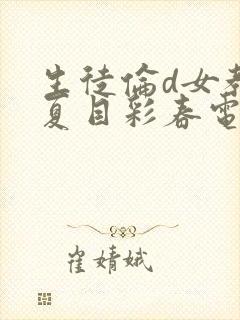 生徒倫d女教
夏目彩春電
崔婧娥